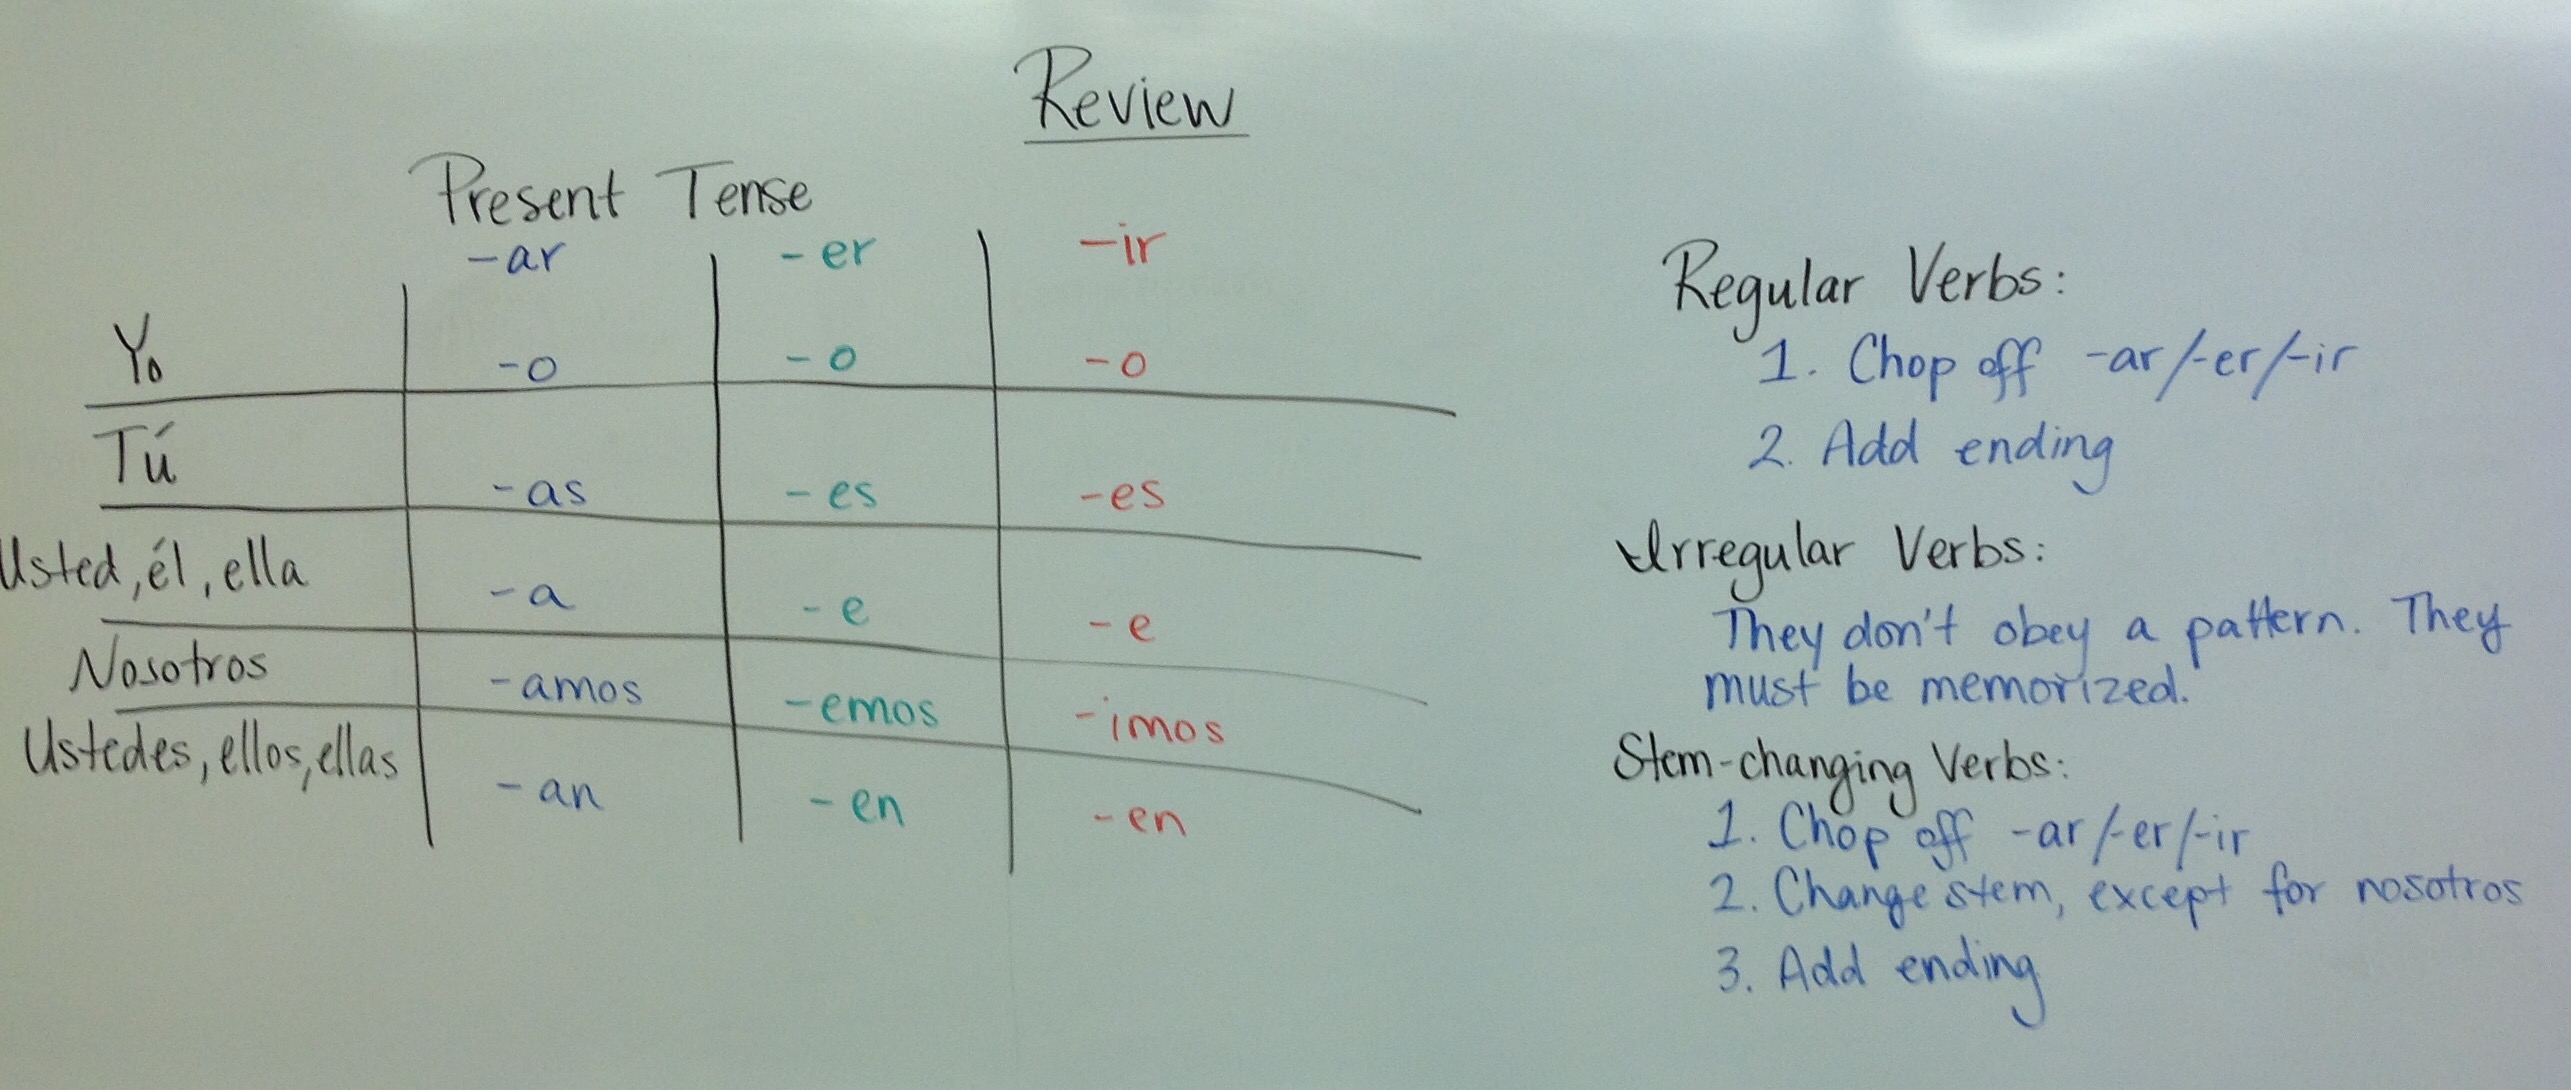 Review
Present Tense
-ar -er -ir
Yo -o -o -o
Tú -as -es -es
Usted, él, ella -a -e -e
Nosotros -amos -emos -imos
Ustedes, ellos, ellas -an -en -en
Regular Verbs:
1. Chop off -ar/-er/-ir
2. Add ending
Irregular Verbs:
They don't obey a pattern. They
must be memorized.
Stem-changing Verbs:
1. Chop off -ar/-er/-ir
2. Change stem, except for nosotros
3. Add ending